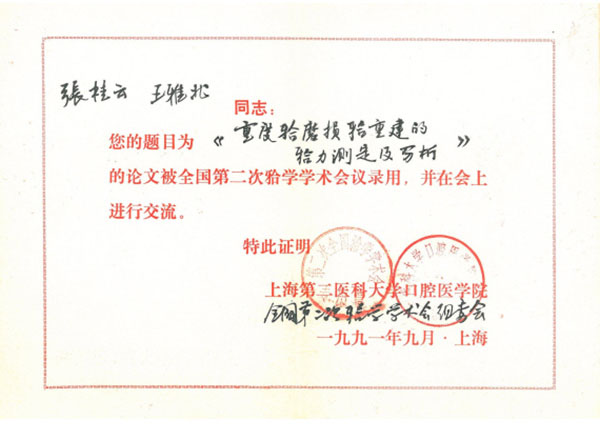 張桂云 王雅北 同志：
您的题目为《重度𬌗磨损𬌗重建的
𬌗力测定及分析》
的论文被全国第二次𬌗学学术会议录用，并在会上
进行交流。
特此证明
上海第二医科大学口腔医学院
全国第二次𬌗学学术会组委会
一九九一年九月·上海